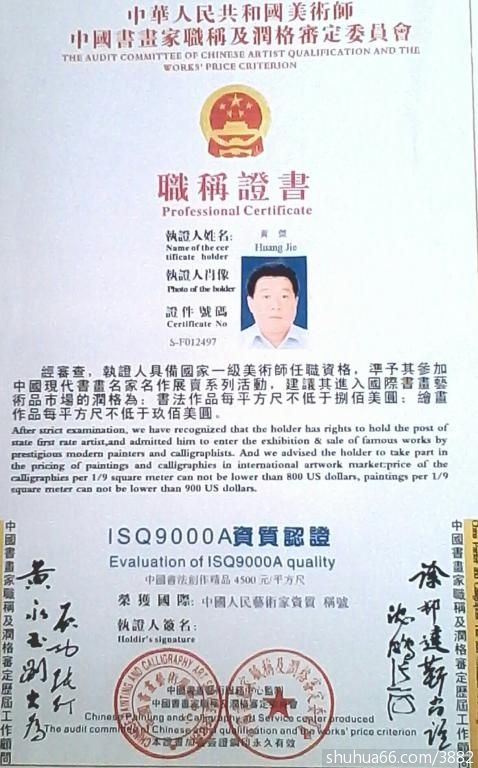 中華人民共和國美術師
中國書畫家職稱及潤格審定委員會
THE AUDIT COMMITTEE OF CHINESE ARTIST QUALIFICATION AND THE
WORKS' PRICE CRITERION
職稱證書
Professional Certificate
執證人姓名:
黃傑
Name of the cer
tificate holder
Huang Jie
執證人肖像
Photo of the holder
證件號碼
Certificate No
S-F012497
經審查，執證人具備國家一級美術師任職資格，準予其參加
中國現代書畫名家名作展賣系列活動，建議其進入國際書畫藝
術品市場的潤格為：書法作品每平方尺不低于捌佰美圓；繪畫
作品每平方尺不低于玖佰美圓。
After strict examination, we have recognized that the holder has rights to hold the post of
state first rate artist,and admitted him to enter the exhibition & sale of famous works by
prestigious modern painters and calligraphists. And we advised the holder to take part in
the pricing of paintings and calligraphies in international artwork market:price of the
calligraphies per 1/9 square meter can not be lower than 800 US dollars, paintings per 1/9
square meter can not be lower than 900 US dollars.
ISQ9000A資質認證
Evaluation of ISQ9000A quality
中國書法創作精品 4500 元/平方尺
榮獲國際: 中國人民藝術家資質 稱號
執證人簽名:
Holdir's signature
中國書畫家職稱及潤格審定歷屆工作顧問
黃永玉
啟功
中國書畫家職稱及潤格審定歷屆工作顧問
徐邦達
沈鵬
Chinese Painting and Calligraphy Art Service center produced
The audit committee of Chinese artist qualification and the works' price criterion
本證書加蓋簽證鋼印永久有效
shuhua66.com/3882